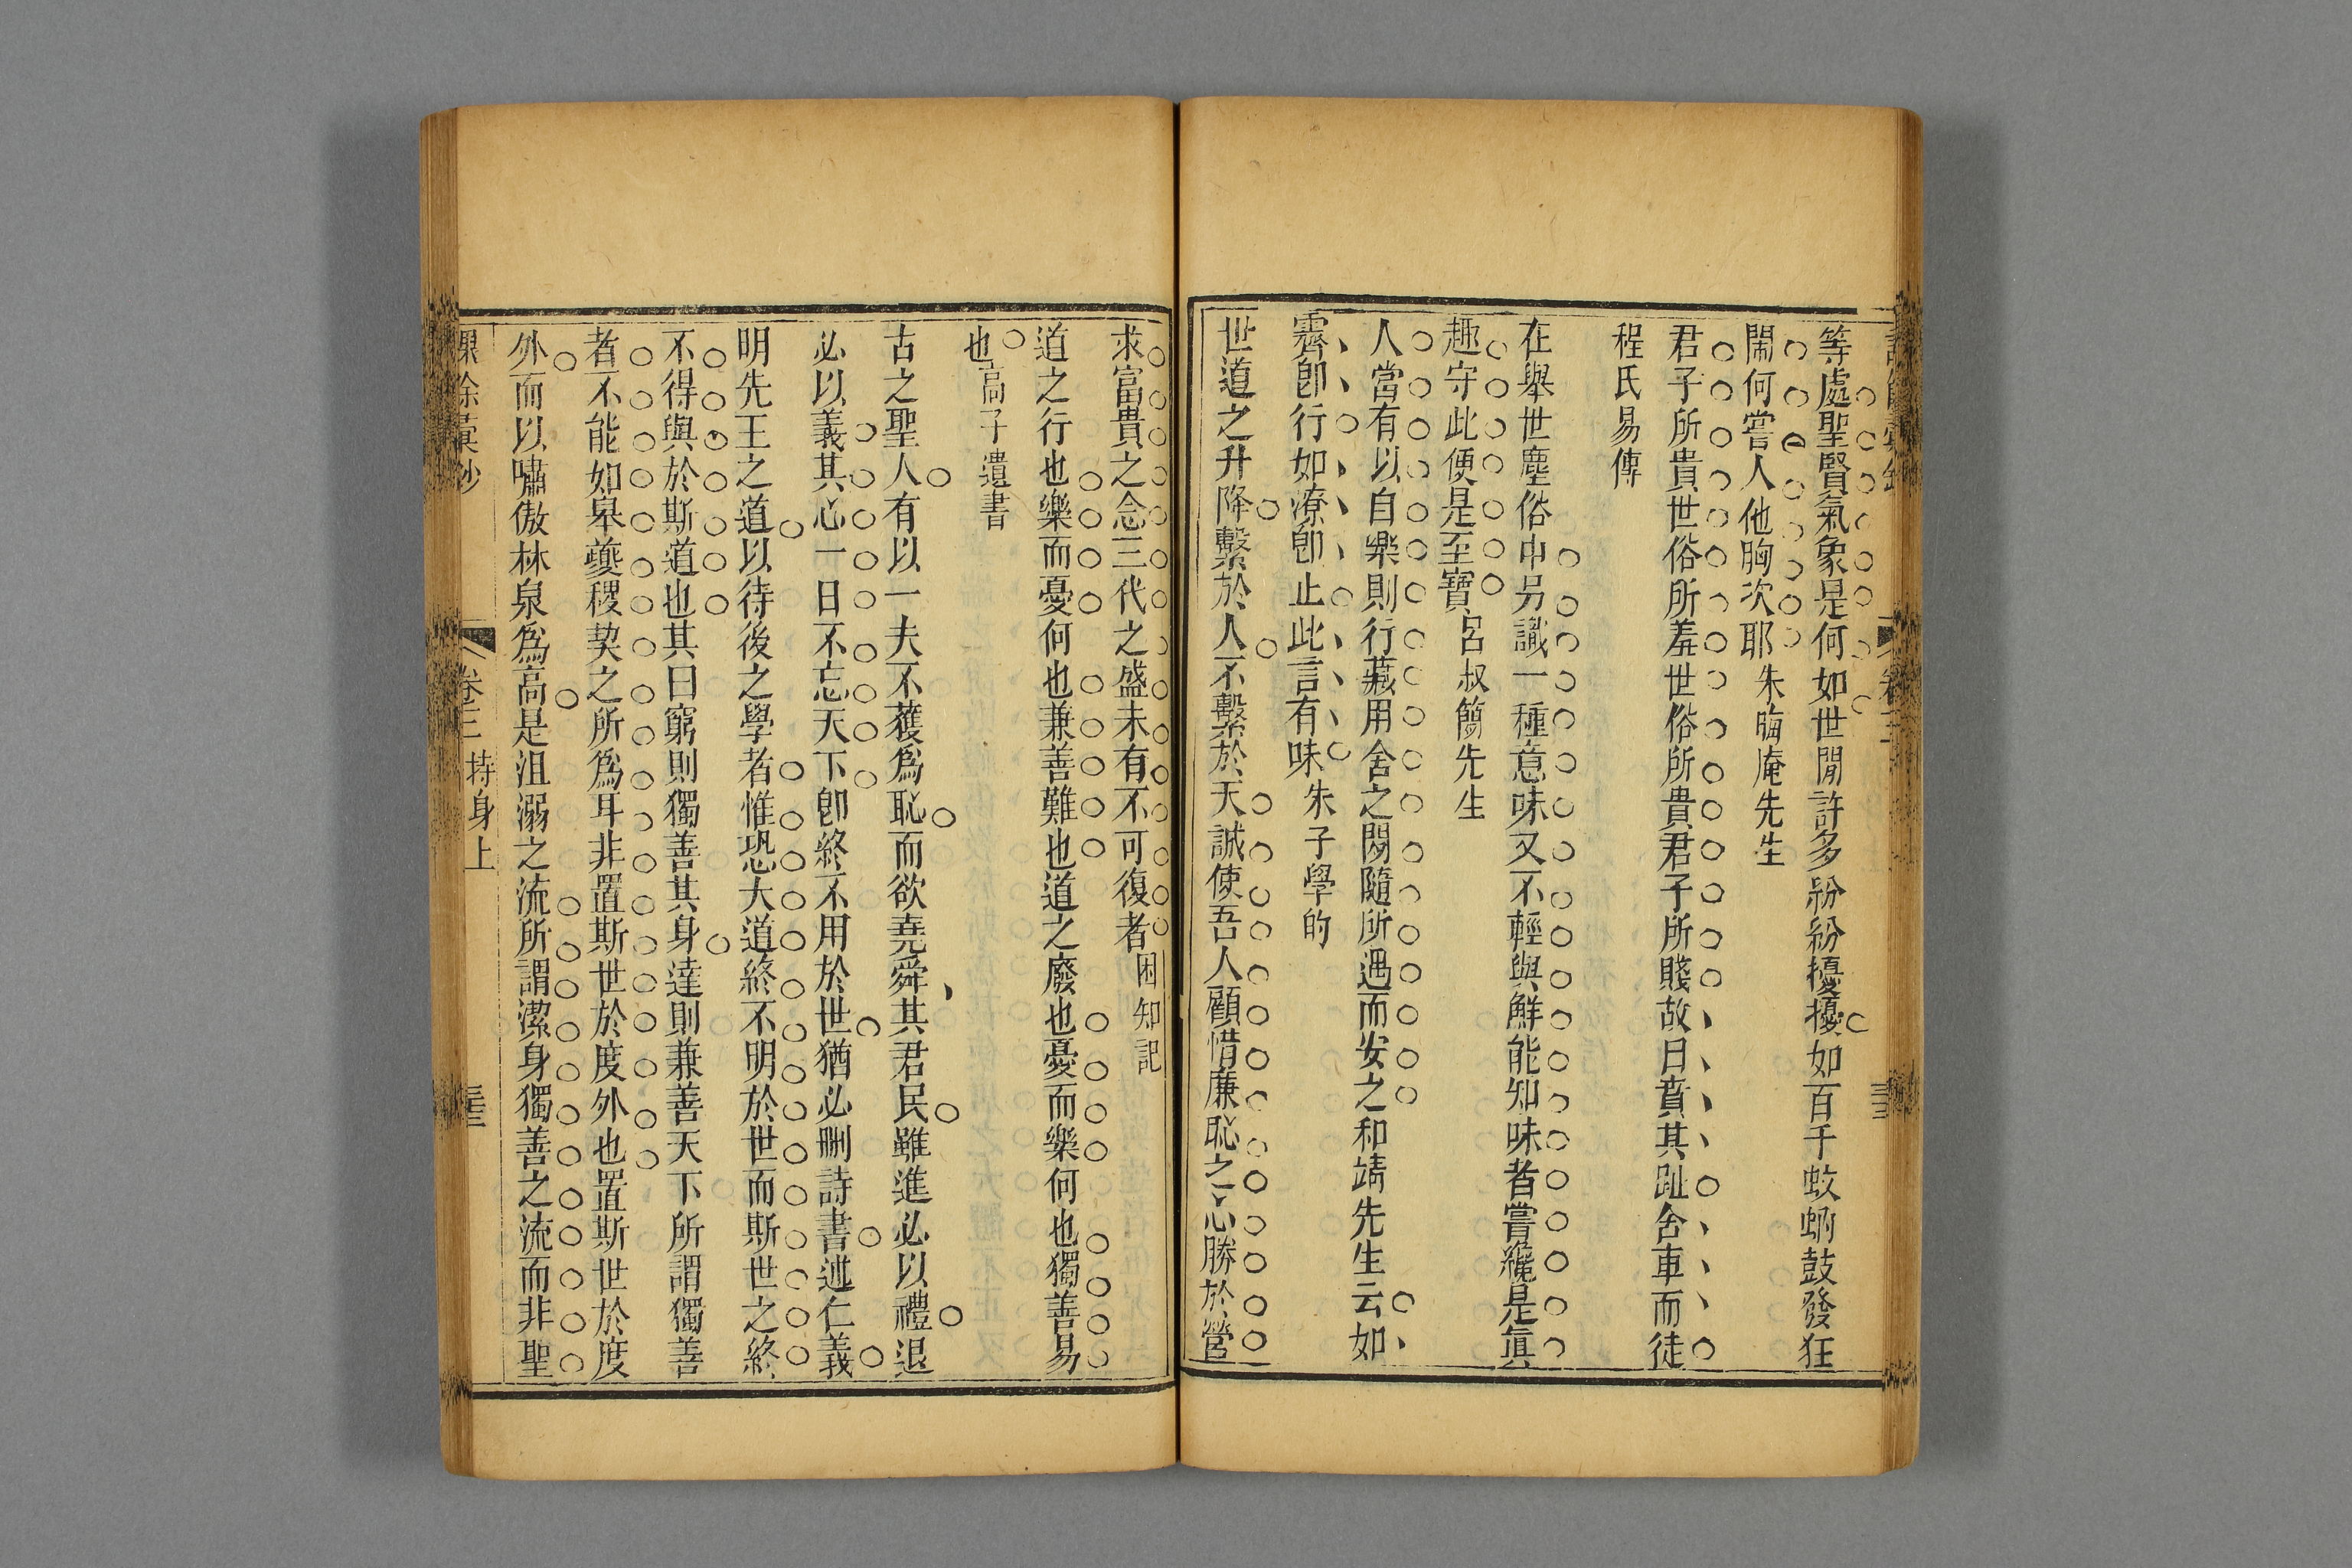 等處聖賢氣象是何如世間許多紛紛擾擾如百千蚊蚋鼓發狂
鬧何嘗人他胸次耶朱晦庵先生
君子所貴世俗所羞世俗所貴君子所賤故曰賁其趾舍車而徒
程氏易傳
在舉世塵俗中另識一種意味又不輕與鮮能知味者嘗纔是眞
趣守此便是至寶呂叔簡先生
人當有以自樂則行藏用舍之閒隨所遇而安之和靖先生云如
霽卽行如潦卽止此言有味朱子學的
世道之升降繫於人不繫於天誠使吾人顧惜廉恥之心勝於營
求富貴之念三代之盛未有不可復者困知記
道之行也樂而憂何也兼善難也道之廢也憂而樂何也獨善易
也高子遺書
古之聖人有以一夫不蒦爲恥而欲堯舜其君民雖進必以禮退
必以義其心一日不忘天下卽終不用於世猶必刪詩書述仁義
明先王之道以待後之學者惟恐大道終不明於世而斯世之終
不得與於斯道也其曰窮則獨善其身達則兼善天下所謂獨善
者不能如皋夔稷契之所爲耳非置斯世於度外也置斯世於度
外而以嘯傲林泉爲高是沮溺之流所謂潔身獨善之流而非聖
課餘彙鈔
卷三
持身上